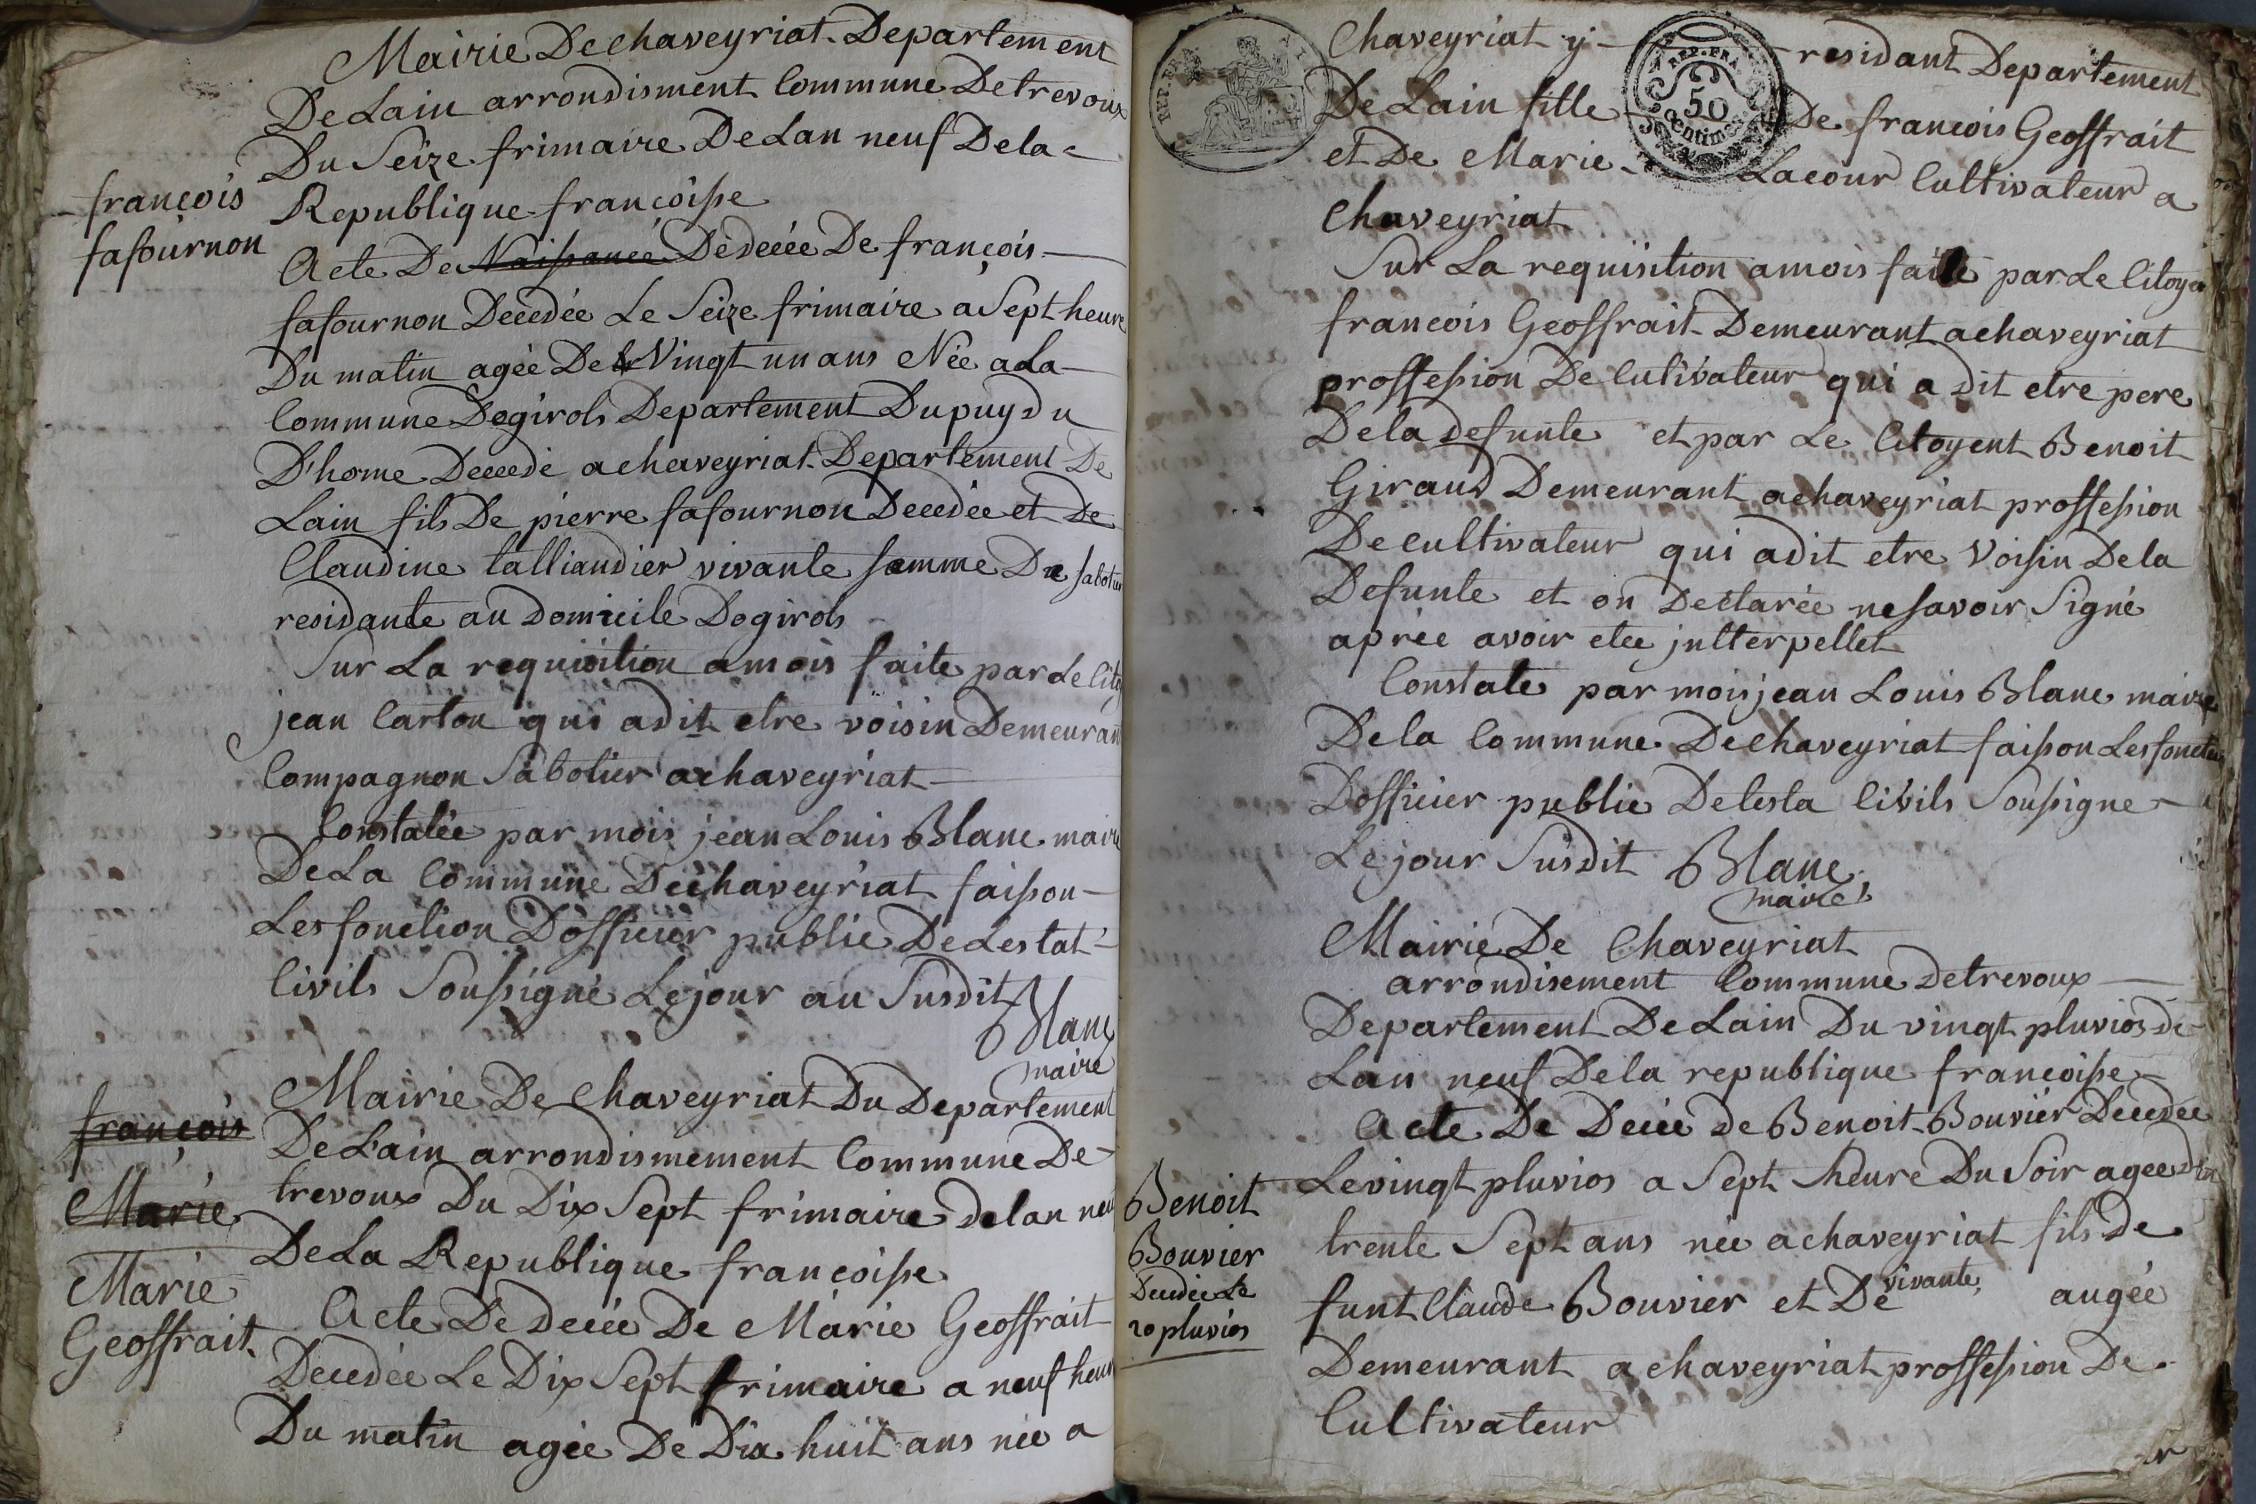 Mairie De chaveyriat Departement
De Lain arrondisment Commune De trevoux
Du Seize frimaire De Lan neuf De la
Republique françoise
françois
fafournon
Acte De Naissancé De deceé De françois
fafournon Decedée Le Seize frimaire a Sept heure
Du matin agée De Vingt un ans Née a La
Commune Dogirols Departement Du puy du
D'home Decedé a chaveyriat Departement De
Lain fils De pierre fafournon Decedée et De
Claudine talliandier vivante femme De sabotier
residante au Domicile Dogirols
Sur La requisition a mois faite par Le Cito
jean Carton qui a dit etre voisin Demeurant
Compagnon Sabotier a chaveyriat
Constatée par mois jean Louis Blanc maire
De La Commune De chaveyriat faisson
Les fonction D'officier public De Lestat
Civils Soussigné Le jour au Susdit
Blanc
maire
françois
Marie
Marie
Geoffrait
Mairie De Chaveyriat Du Departement
De Lain arrondismement Commune De
trevoux Du Dix Sept frimaire de lan neuf
De La Republique françoisse
Acte De deceé De Marie Geoffrait
Decedée Le Dix Sept frimaire a neuf heur
Du matin agée De Dix huit ans née a
REP. FRA.
REP. FRA.
50
Centimes
Chaveyriat y residant Departement
De Lain fille De francois Geoffrait
et De Marie Lacour Cultivateur a
Chaveyriat
Sur La requisition a mois faite par Le Citoyen
francois Geoffrait Demeurant a chaveyriat
proffession De Cutivateur qui a dit etre pere
De la defunte et par Le Citoyent Benoit
Giraud Demeurant a chaveyriat proffession
De cultivateur qui a dit etre Voisin De la
Defunte et on Declarée ne savoir Signé
aprée avoir etée jnterpellet
Constate par mois jean Louis Blanc maire
De la Commune De chaveyriat faisson Les fonction
D'officier public De lesta Civils Soussigne
Le jour Susdit Blanc
maire
Mairie De Chaveyriat
arrondisement Commune de trevoux
Departement De Lain Du vingt pluvios de
Lan neuf De la republique françoisse
Acte De Deceé de Benoit Bouvier Decedée
Le vingt pluvios a Sept heure Du Soir agée de
trente Sept ans née a chaveyriat fils De
funt Claude Bouvier et De vivante augée
Demeurant a chaveyriat proffession De
Cultivateur
Benoit
Bouvier
Decedée Le
20 pluvios